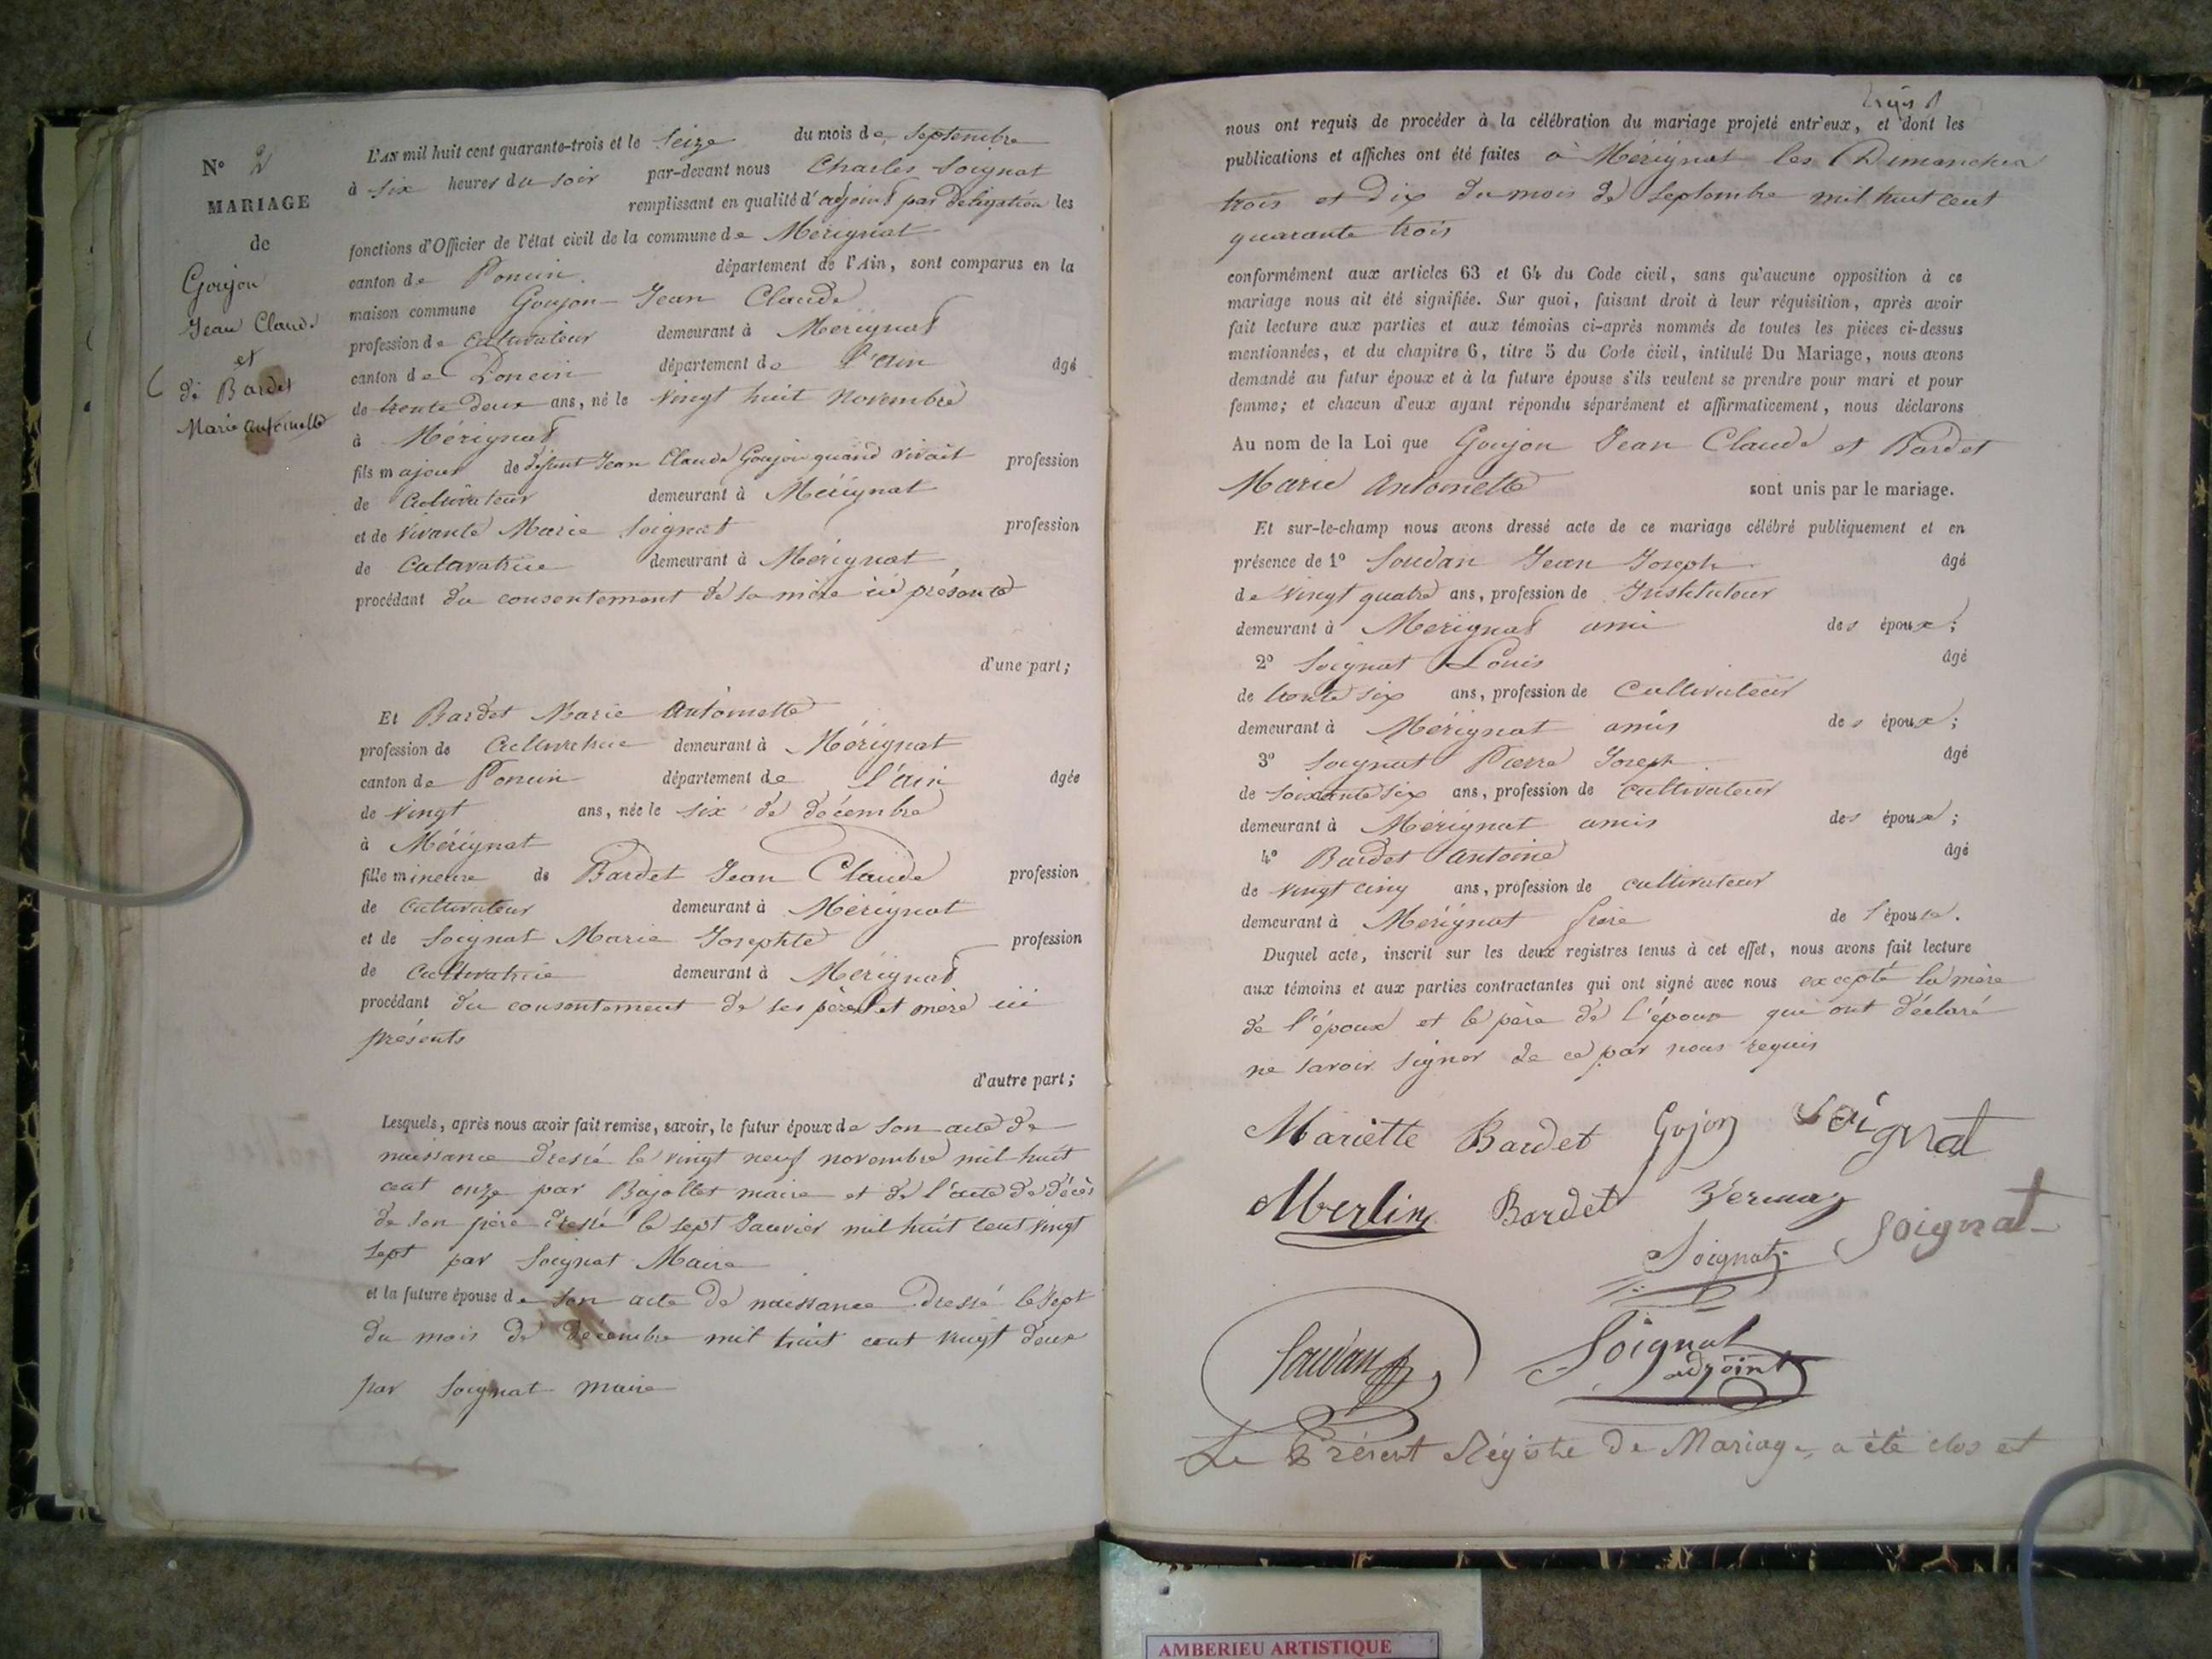 N° 2
MARIAGE
de
Goujon
Jean Claude
et
de Bardet
Marie Antoinette
L'AN mil huit cent quarante-trois et le seize du mois de Septembre
à six heures du soir par-devant nous Charles Soignat
remplissant en qualité d'adjoint par délégation les
fonctions d'Officier de l'état civil de la commune de Mérignat
canton de Poncin département de l'Ain, sont comparus en la
maison commune Goujon Jean Claude
profession de cultivateur demeurant à Mérignat
canton de Poncin département de l'ain âgé
de trente deux ans, né le vingt huit Novembre
à Mérignat
fils majeur de défunt Jean Claude Goujon quand vivait profession
de Cultivateur demeurant à Mérignat
et de vivante Marie Soignat profession
de Cultivatrice demeurant à Mérignat
procédant du consentement de sa mère ici présente
d'une part;
Et Bardet Marie Antoinette
profession de Cultivatrice demeurant à Mérignat
canton de Poncin département de l'ain âgée
de vingt ans, née le six de décembre
à Mérignat
fille mineure de Bardet Jean Claude profession
de cultivateur demeurant à Mérignat
et de Soignat Marie Josephte profession
de Cultivatrice demeurant à Mérignat
procédant du consentement de ses père et mère ici
présents
d'autre part;
Lesquels, après nous avoir fait remise, savoir, le futur époux de son acte de
naissance dressé le vingt neuf novembre mil huit
cent onze par Bajollet maire et de l'acte de décès
de son père dressé le sept Janvier mil huit cent vingt
sept par Soignat Maire
et la future épouse de son acte de naissance dressé le sept
du mois de décembre mil huit cent vingt deux
par Soignat maire
nous ont requis de procéder à la célébration du mariage projeté entr'eux, et dont les
publications et affiches ont été faites à Mérignat les Dimanches
trois et dix du mois de Septembre mil huit cent
quarante trois
conformément aux articles 63 et 64 du Code civil, sans qu'aucune opposition à ce
mariage nous ait été signifiée. Sur quoi, faisant droit à leur réquisition, après avoir
fait lecture aux parties et aux témoins ci-après nommés de toutes les pièces ci-dessus
mentionnées, et du chapitre 6, titre 5 du Code civil, intitulé Du Mariage, nous avons
demandé au futur époux et à la future épouse s'ils veulent se prendre pour mari et pour
femme; et chacun d'eux ayant répondu séparément et affirmativement, nous déclarons
Au nom de la Loi que Goujon Jean Claude et Bardet
Marie Antoinette sont unis par le mariage.
Et sur-le-champ nous avons dressé acte de ce mariage célébré publiquement et en
présence de 1° Soudan Jean Joseph âgé
de vingt quatre ans, profession de Instituteur
demeurant à Mérignat ami des époux;
2° Soignat Louis âgé
de trente six ans, profession de Cultivateur
demeurant à Mérignat amis des époux;
3° Soignat Pierre Joseph âgé
de soixante six ans, profession de Cultivateur
demeurant à Mérignat amis des époux;
4° Bardet Antoine âgé
de vingt cinq ans, profession de cultivateur
demeurant à Mérignat frère de l'épouse.
Duquel acte, inscrit sur les deux registres tenus à cet effet, nous avons fait lecture
aux témoins et aux parties contractantes qui ont signé avec nous excepté la mère
de l'époux et le père de l'époux qui ont déclaré
ne savoir signer de ce par nous requis
Mariette Bardet Gojon Soignat
Merlin Bardet
Soignat Soignat
Soudan Soignat
adjoint
Le Présent Régistre de Mariage a été clos et
AMBERIEU ARTISTIQUE